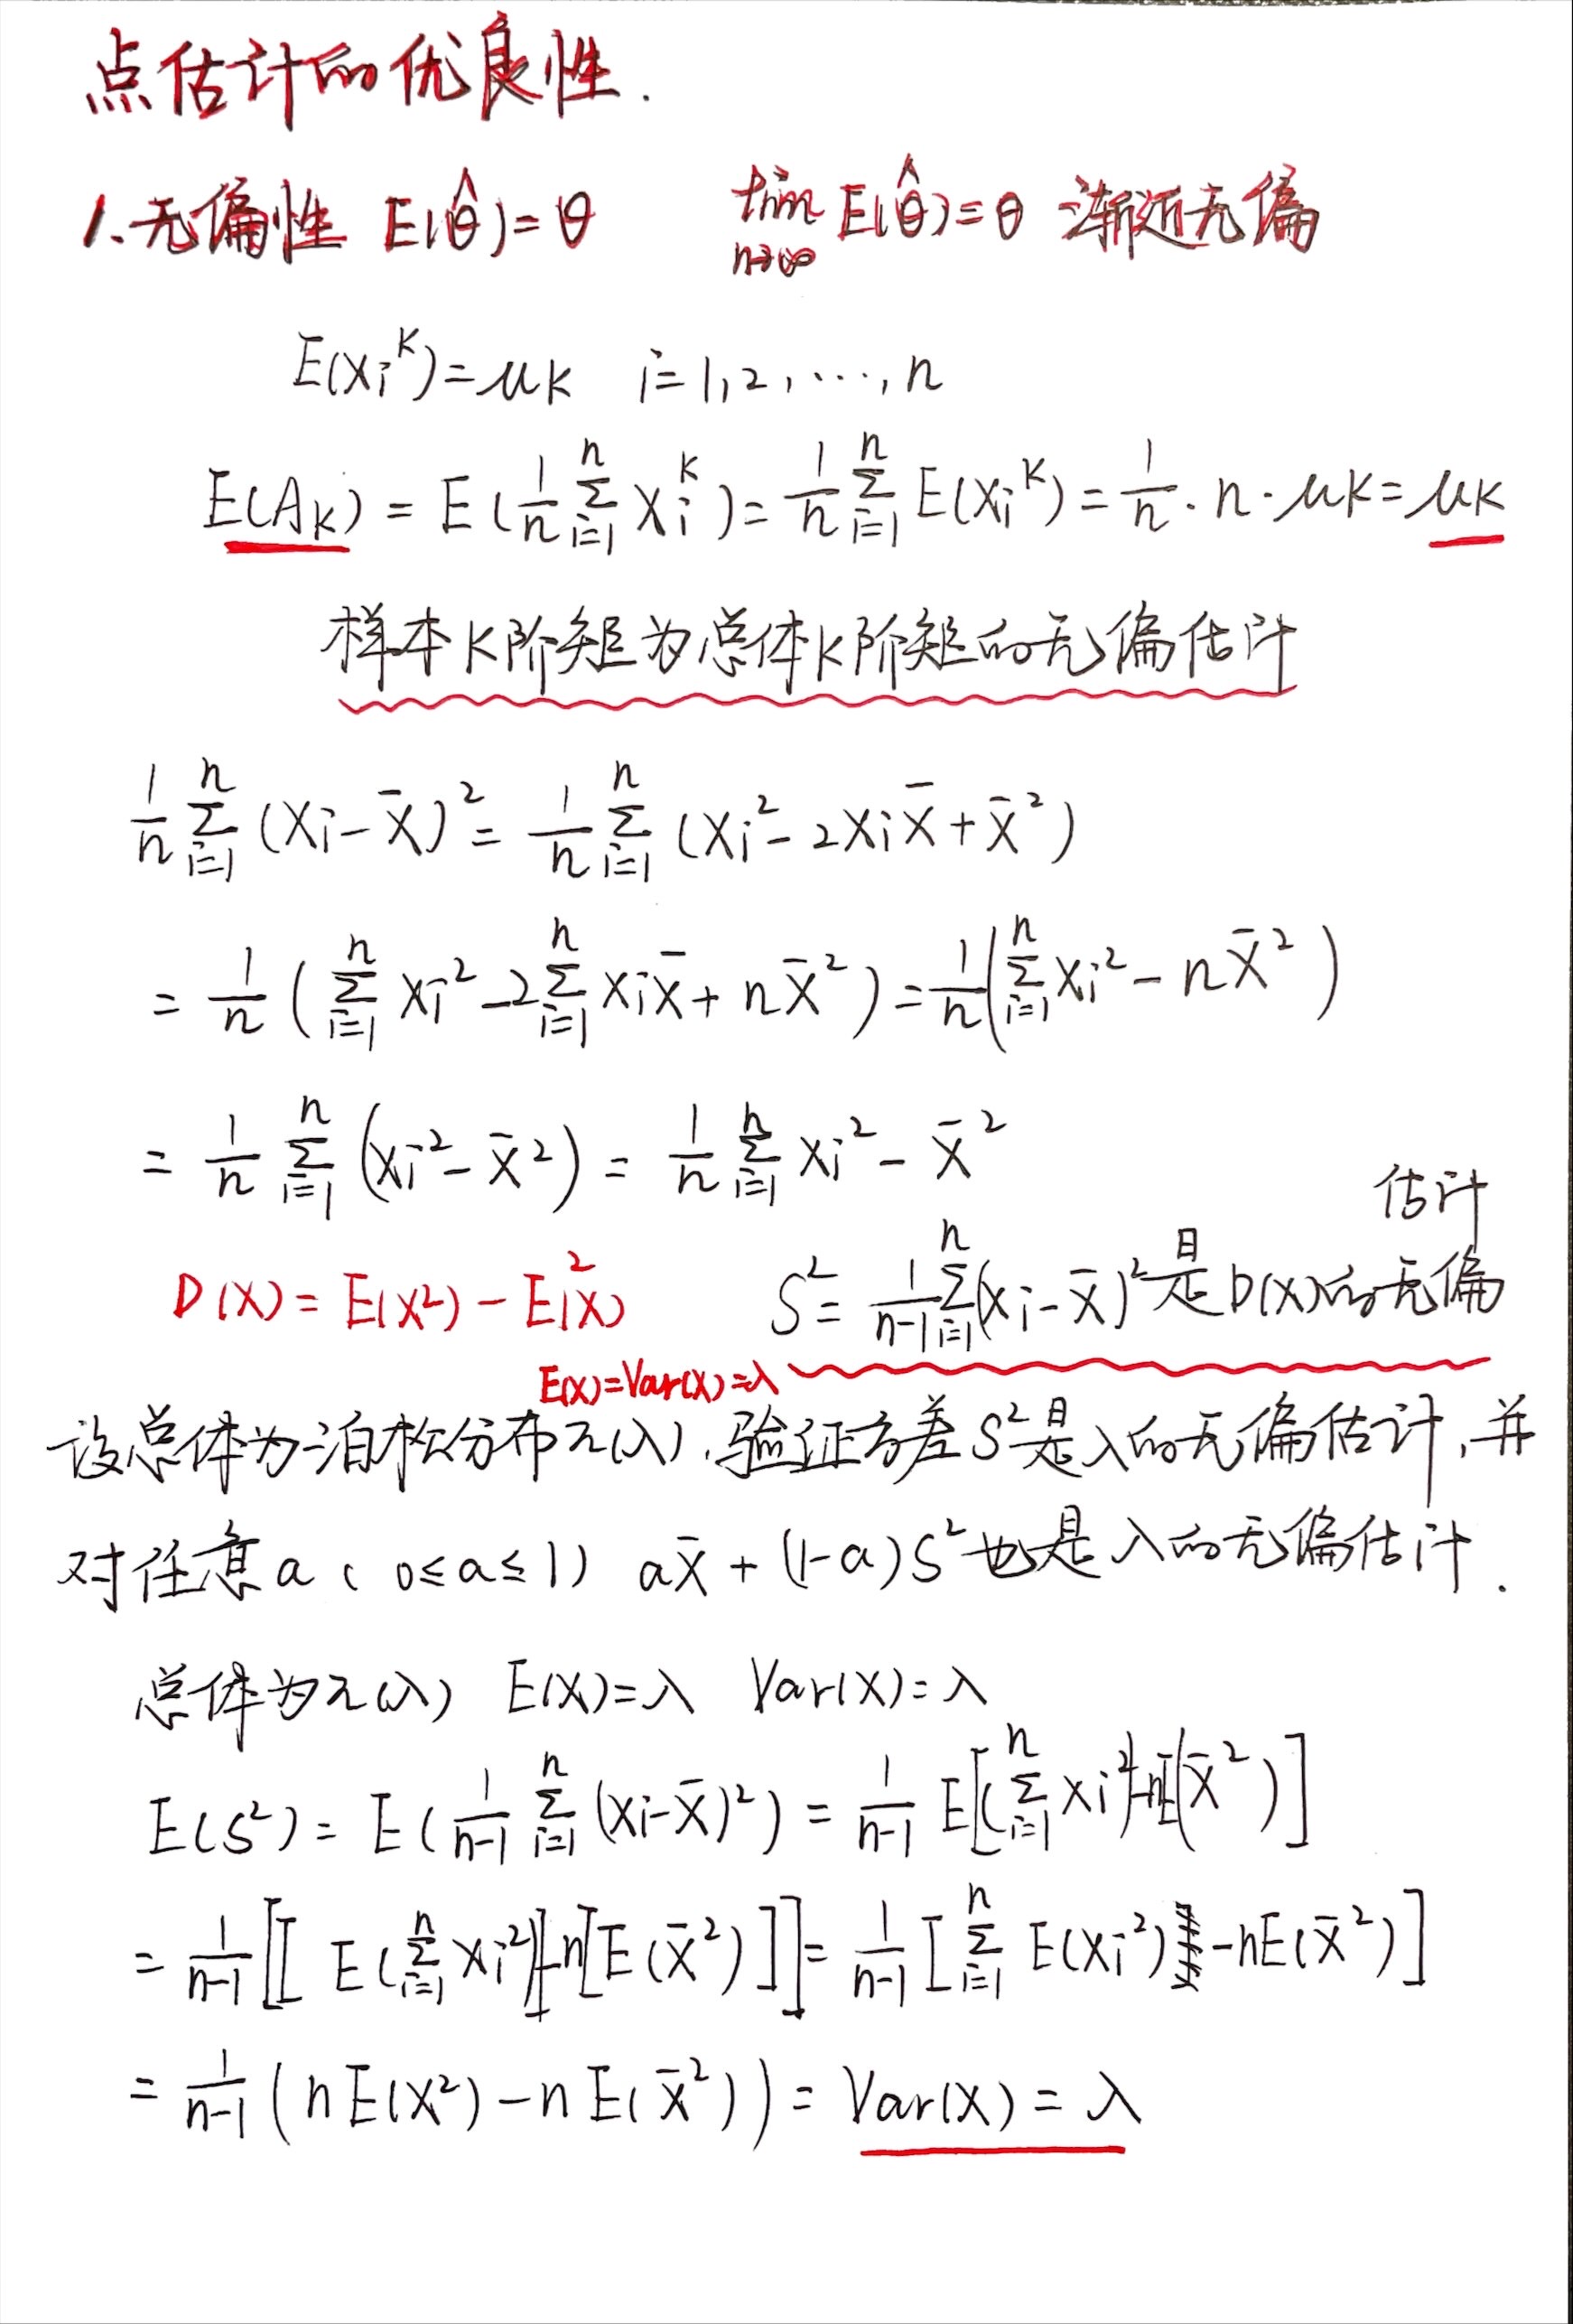 点估计的优良性.
1.无偏性 E(θ̂)=θ lim n→∞ E(θ̂)=θ 渐近无偏
E(Xi^K)=μK i=1,2,⋯,n
E(AK) = E(1/n Σ_{i=1}^n Xi^K) = 1/n Σ_{i=1}^n E(Xi^K) = 1/n · n · μK = μK
样本K阶矩为总体K阶矩的无偏估计
1/n Σ_{i=1}^n (Xi-X̄)² = 1/n Σ_{i=1}^n (Xi²-2XiX̄+X̄²)
= 1/n (Σ_{i=1}^n Xi² -2Σ_{i=1}^n XiX̄ + nX̄²) = 1/n (Σ_{i=1}^n Xi² - nX̄²)
= 1/n Σ_{i=1}^n (Xi²-X̄²) = 1/n Σ_{i=1}^n Xi² - X̄²
D(X) = E(X²) - E²(X) S² = 1/(n-1) Σ_{i=1}^n (Xi-X̄)² 是D(X)的无偏估计
E(X)=Var(X)=λ
设总体为泊松分布π(λ),验证方差S²是λ的无偏估计,并
对任意a(0≤a≤1) aX̄ + (1-a)S²也是λ的无偏估计.
总体为π(λ) E(X)=λ Var(X)=λ
E(S²) = E(1/(n-1) Σ_{i=1}^n (Xi-X̄)²) = 1/(n-1) E[(Σ_{i=1}^n Xi²)-nE(X̄²)]
= 1/(n-1) [[E(Σ_{i=1}^n Xi²)]-n[E(X̄²)]] = 1/(n-1) [Σ_{i=1}^n E(Xi²) -nE(X̄²)]
= 1/(n-1) (nE(X²)-nE(X̄²)) = Var(X) = λ